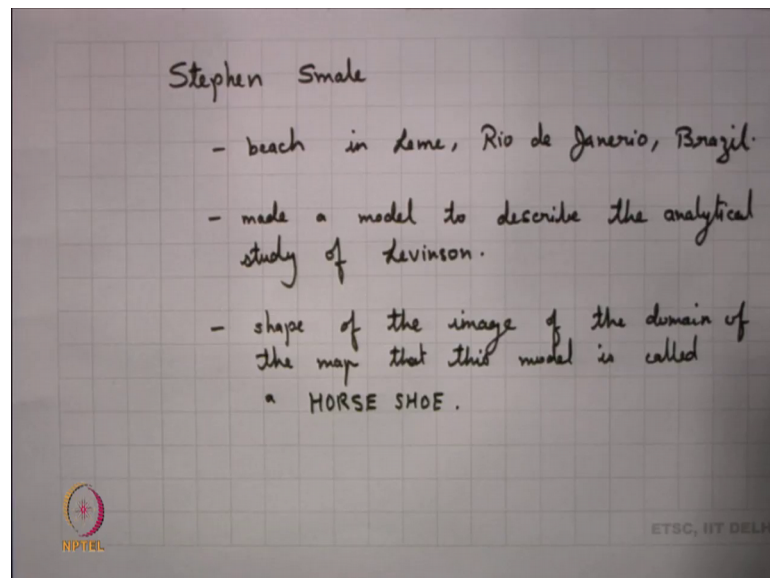 Stephen Smale
- beach in Leme, Rio de Janerio, Brazil.
- made a model to describe the analytical
study of Levinson.
- shape of the image of the domain of
the map that this model is called
a HORSE SHOE.
NPTEL
ETSC, IIT DELH